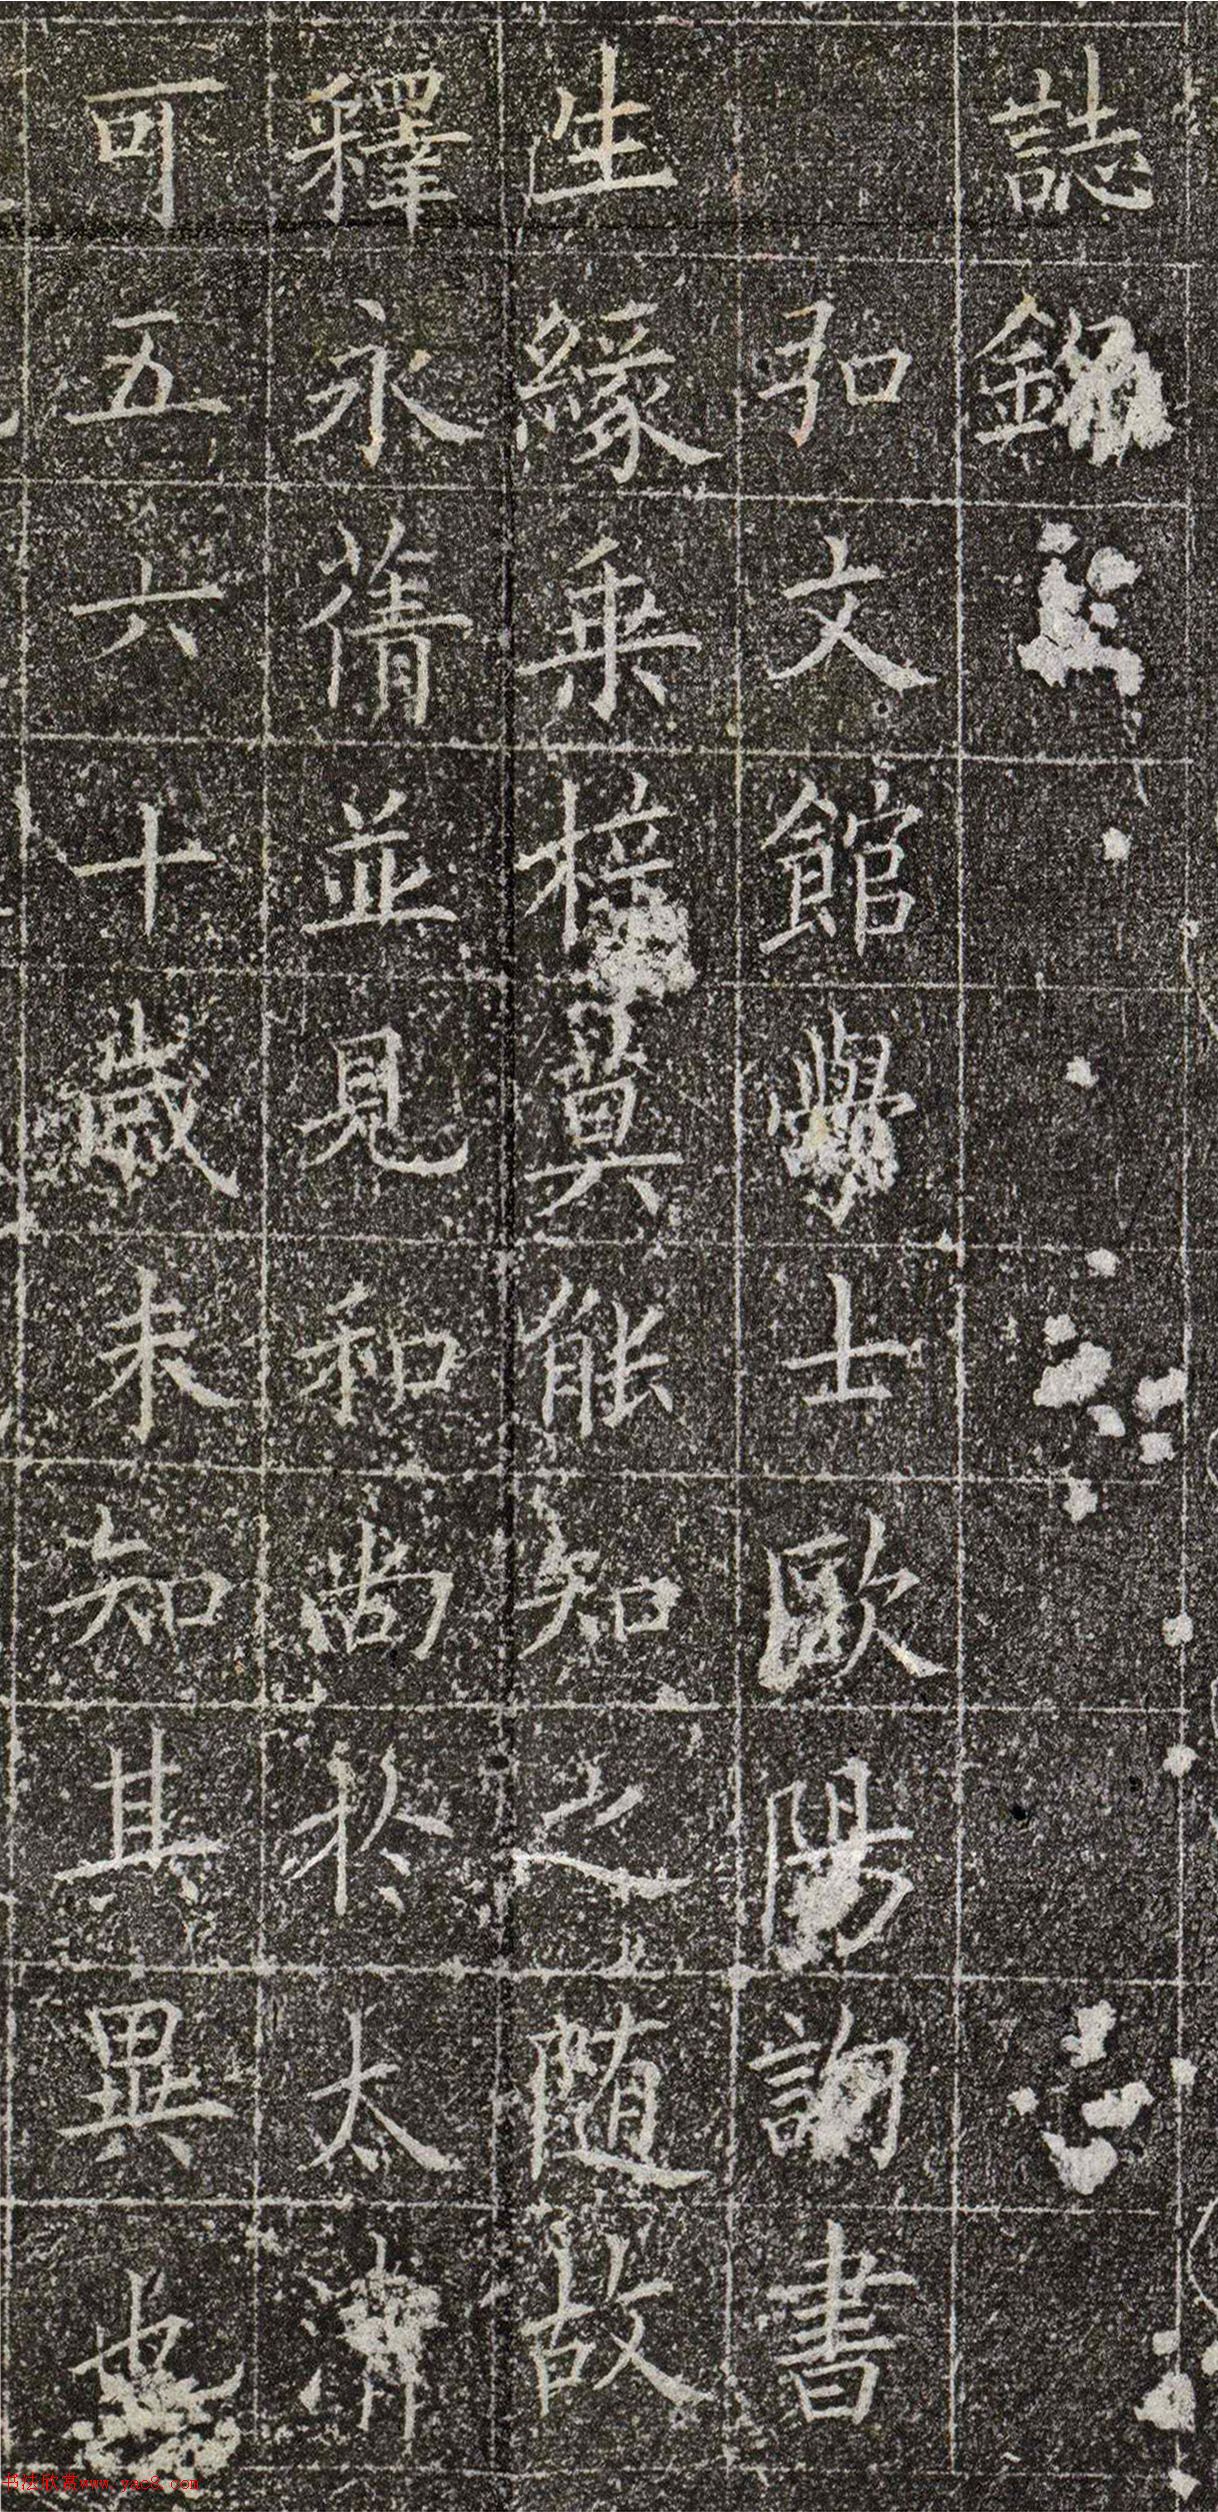 誌銘
弘文館學士歐陽詢書
生緣乗莫能知之随故
釋永蒨並見和尚於太清
可五六十歲未知其異也
书法欣赏www.yac8.com